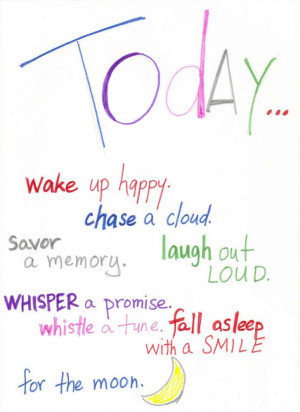 Today...
Wake up happy.
chase a cloud.
Savor
a memory.
laugh out
LOUD.
WHISPER a promise.
whistle a tune. fall asleep
with a SMILE
for the moon.